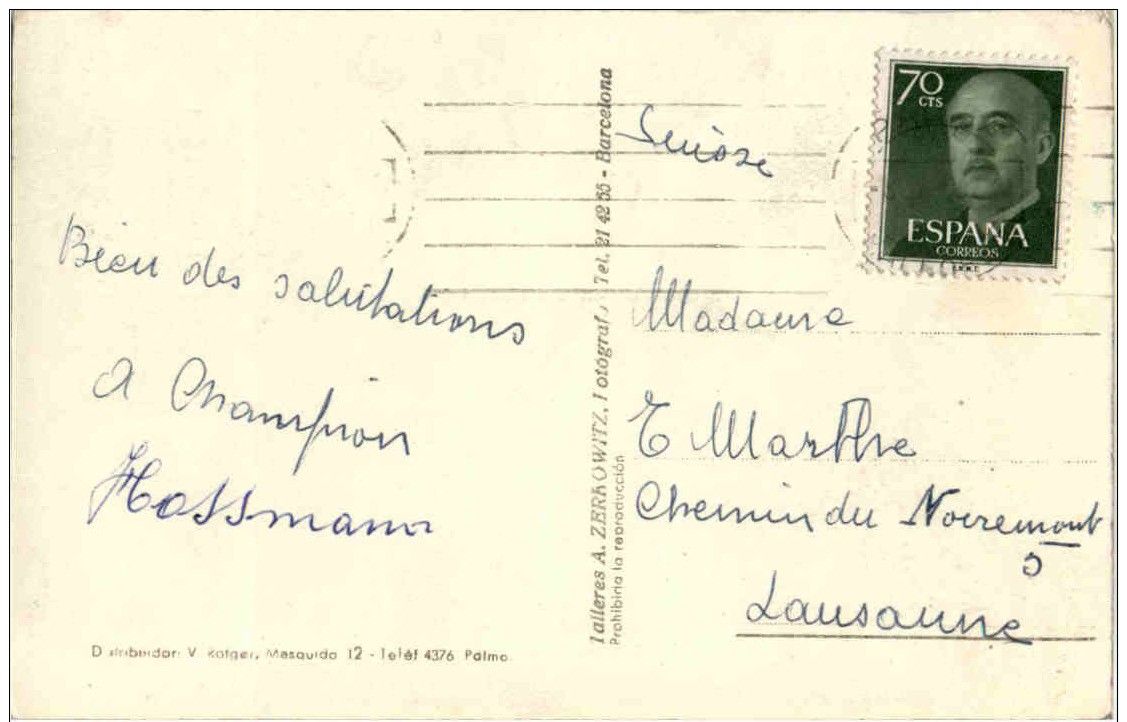 Bien des salutations
A Champion
Hossmann
Distribuidor: V. Rotger, Mesquida 12 - Teléf 4376 Palma.
Talleres A. ZERKOWITZ, Fotógrafo Tel. 21 42 55 - Barcelona
Prohibida la reproducción
70
CTS
ESPAÑA
CORREOS
Suisse
Madame
E Marthe
Chemin du Noiremont
5
Lausanne